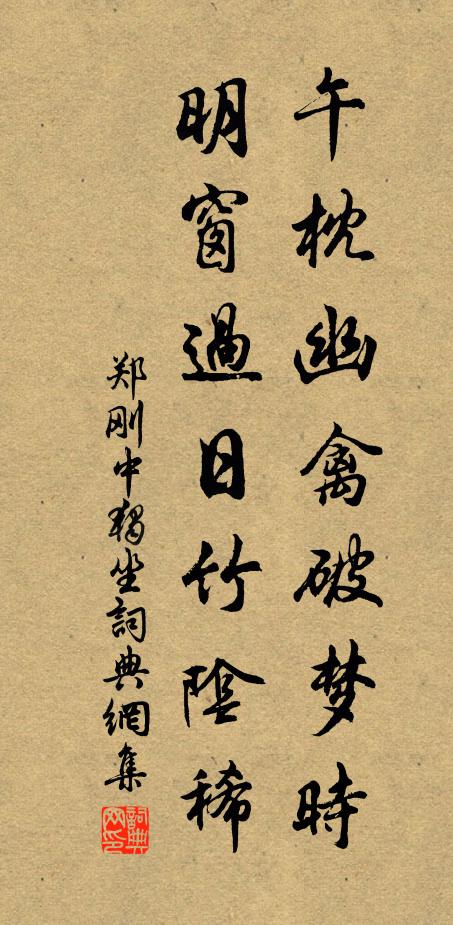 午枕幽禽破梦時
明窗過日竹陰稀
郑刚中獨坐詞典網集
詞典网印